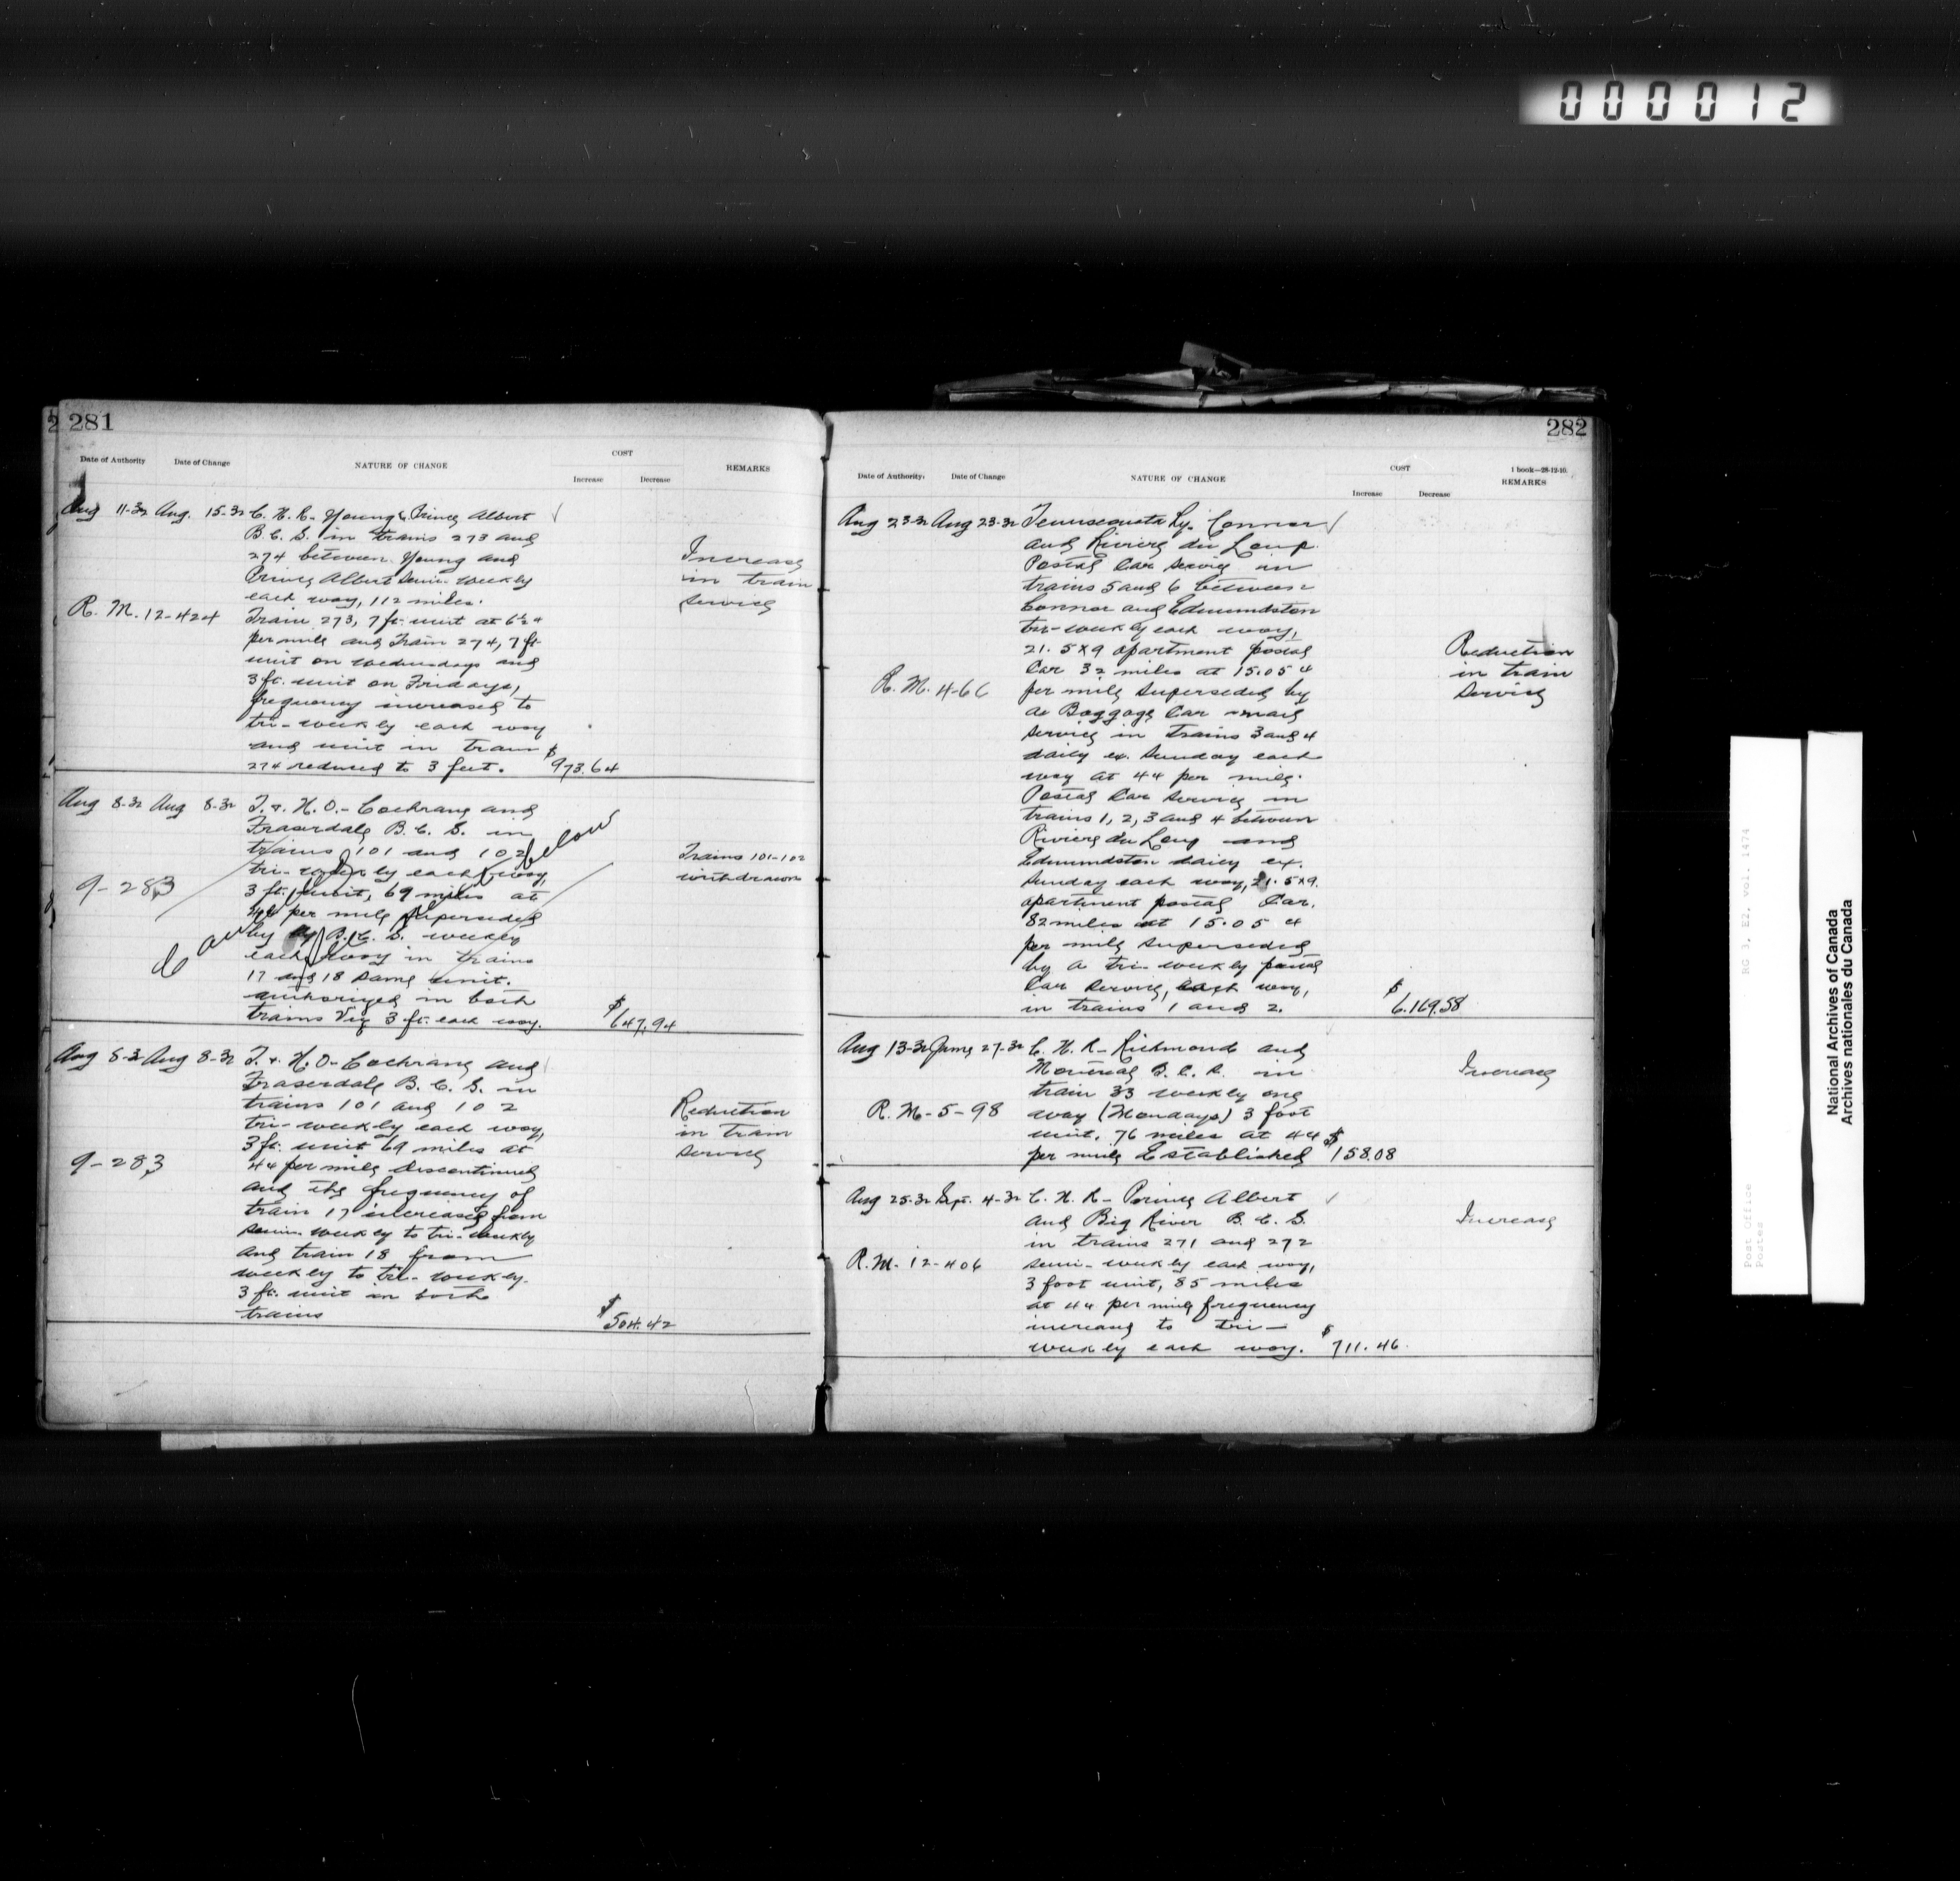 000012
281
Date of Authority Date of Change NATURE OF CHANGE COST Increase Decrease REMARKS
Aug 11-32 Aug. 15-32 C. N. R. - Young & Prince Albert
B. C. S. in trains 273 and
274 between Young and
Prince Albert semi-weekly
each way, 112 miles.
R. M. 12-424 Train 273, 7 ft. unit at 6½ ¢
per mile and Train 274, 7 ft
unit on Wednesdays and
3 ft. unit on Fridays,
frequency increased to
tri-weekly each way
and unit in Train
274 reduced to 3 feet. $973.64
Increase
in train
service
Aug 8-32 Aug 8-32 T. & N. O. - Cochrane and
Fraserdale B. C. S. in
trains 101 and 102
tri-weekly each way,
9-283 3 ft. unit, 69 miles at
4¢ per mile superseded
by B. C. S. weekly
each way in trains
17 and 18 same unit.
authorized in both
trains viz 3 ft. each way. $647.94
Trains 101-102
withdrawn
below
Aug 8-32 Aug 8-32 T. & N. O. - Cochrane and
Fraserdale B. C. S. in
trains 101 and 102
tri-weekly each way,
3 ft. unit 69 miles at
9-283 4¢ per mile discontinued
and the frequency of
train 17 increased from
semi-weekly to tri-weekly
and train 18 from
weekly to tri-weekly.
3 ft. unit in both
trains $504.42
Reduction
in train
service
282
1 book-28-12-10.
Date of Authority: Date of Change NATURE OF CHANGE COST Increase Decrease REMARKS
Aug 23-32 Aug 23-32 Temiscouata Ry. Connor
and Riviere du Loup
Postal Car service in
trains 5 and 6 between
Connor and Edmundston
tri-weekly each way,
21.5x9 apartment postal
Car 32 miles at 15.05 ¢
R. M. 4-66 per mile superseded by
a Baggage Car mail
service in Trains 3 and 4
daily ex. Sunday each
way at 4¢ per mile.
Postal Car service in
trains 1, 2, 3 and 4 between
Riviere du Loup and
Edmundston daily ex.
Sunday each way, 21.5x9.
apartment postal Car.
82 miles at 15.05 ¢
per mile superseded
by a tri-weekly postal
Car service, each way,
in trains 1 and 2. $6,169.58
Reduction
in train
service
Aug 13-32 June 27-32 C. N. R - Richmond and
Montreal B. C. S. in
train 33 weekly one
R. M. - 5-98 way (Mondays) 3 foot
unit. 76 miles at 4¢
per mile Established $158.08
Increase
Aug 25-32 Sept. 4-32 C. N. R - Prince Albert
and Big River B. C. S.
in trains 271 and 272
R. M. 12-406 semi-weekly each way,
3 foot unit, 85 miles
at 4¢ per mile frequency
increased to tri-
weekly each way. $711.46
Increase
Post Office RG 3, E2, vol. 1474
Postes
National Archives of Canada
Archives nationales du Canada